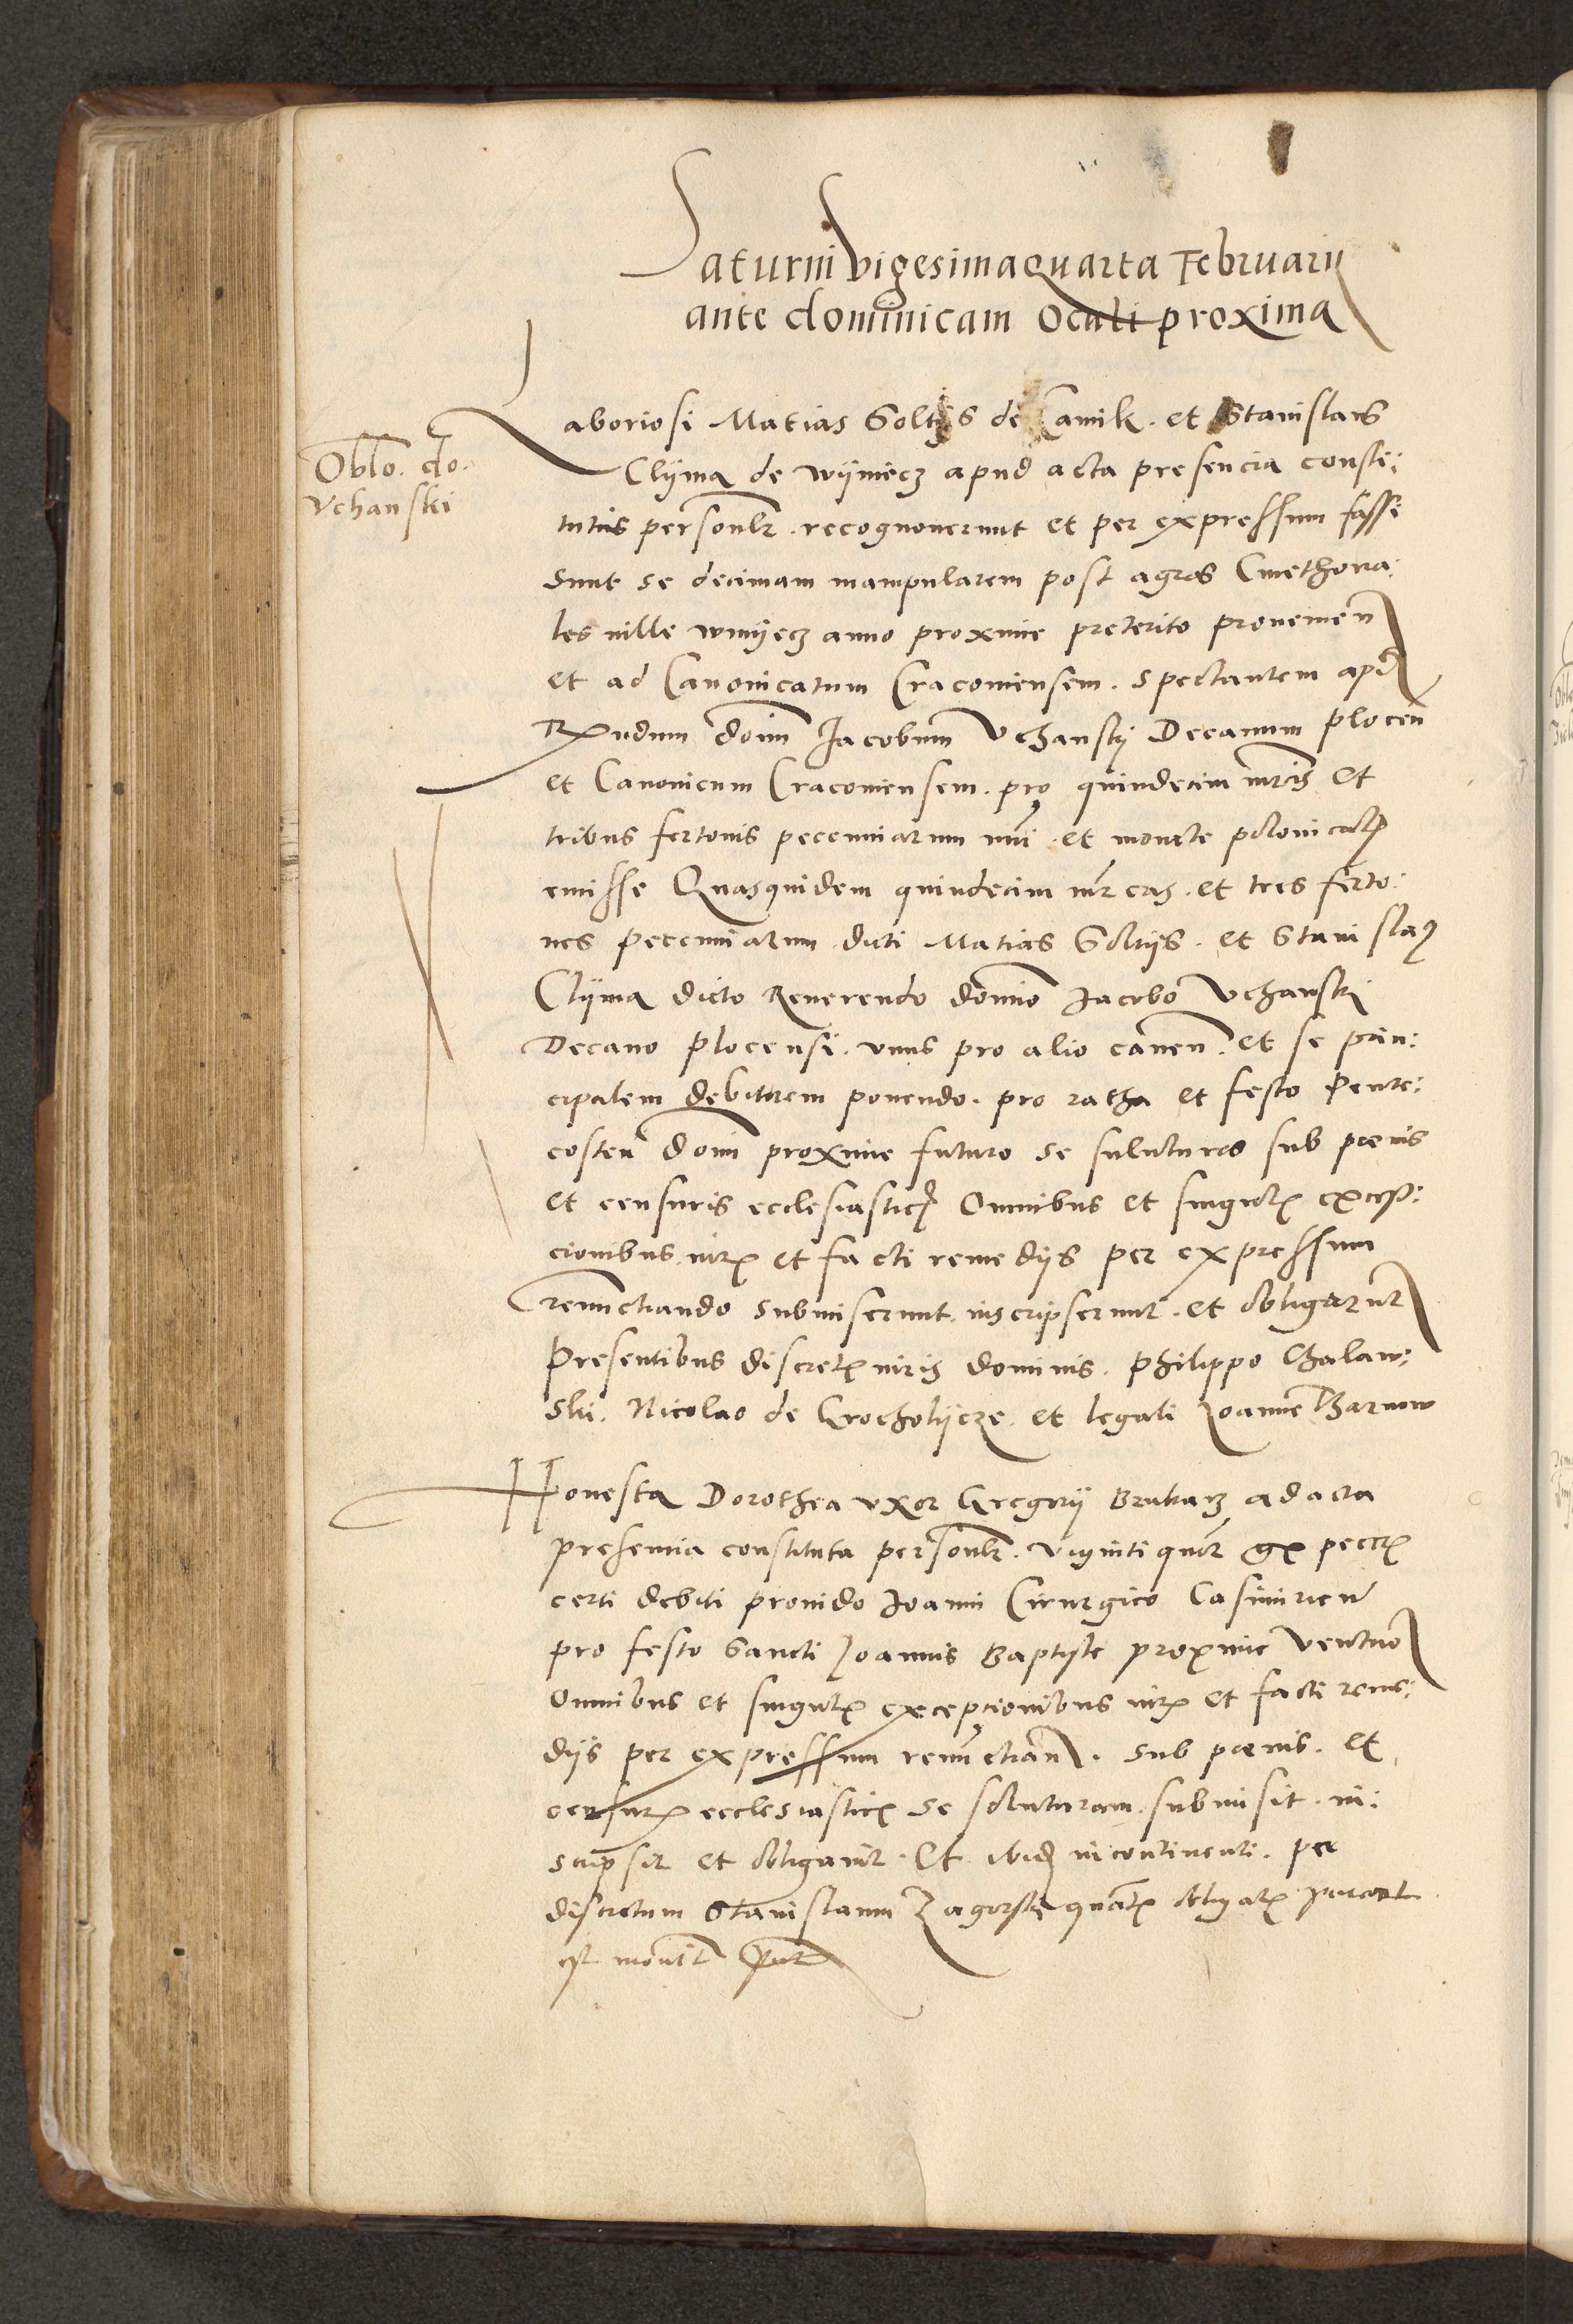 Saturni vigesimaquarta Februarii
ante dominicam Oculi proxima
Oblo. do.
Vchanski
Laboriosi Matias Soltijs de Camik. et Stanislaus
Clijma de wijmiecz apud acta presencia consti:
tutus personlr. recognouerunt et per expressum fassi
sunt se decimam manipularem post agros Cmethona:
les ville wmijecz anno proxime preterito prouenien
et ad Canonicatum Cracouiensem. spectantem apud
Rndum doim Jacobum Vchanskij Decanum Plocen
et Canonicum Cracouiensem. pro quindecim mrcis et
tribus fertonis pecuniarum nui. et monete polonicalis
emisse Quasquidem quindecim mrcas. et tres ferto:
nes pecuniarum dicti Matias Soltijs. et Stanislaus
Clijma dicto Reuerendo domino Jacobo Vchanski
Decano Plocensi. vnus pro alio cauen. et se prin:
cipalem debitorem ponendo. pro ratha et festo Pente:
costen doni proxime futuro se soluturos sub poenis
et censuris ecclesiasticis Omnibus et singulis excep:
cionibus iuris et facti remedijs per expressum
renunctiando submiserunt. inscripserunt. et obligarunt
Presentibus discretis viris dominis. Philippo Chalaw:
ski. Nicolao de Grocholijcze. et legali Joanne Barnow
Honesta Dorothea vxor Gregorij Brukarz ad acta
presentia constituta personlr. viginti quor gr pecur
certi debiti prouido Joanni Cirurgico Casimirien
pro festo Sancti Joannis Baptiste proxime venturo
Omnibus et singulis exceptionibus iuris et facti reme:
dijs per expressum renunctian. sub poenis. et
censuris ecclesiasticis se soluturam. submisit. in:
scripsit et obligauit. Et ibidem incontinenti. per
discretum Stanislaum Zagorski quatr obligatr
est monit